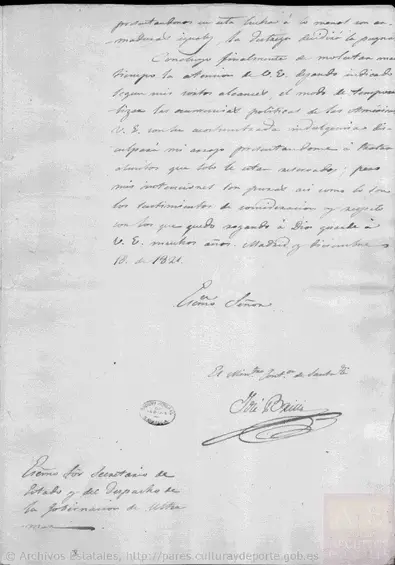 presentandonos en esta lucha à lo menos con ar-
madura igual, la destreza decidirà la pugna
Concluyo finalmente de molestar mas
tiempo la atencion de V. E. dejando indicado
segun mis cortos alcances, el modo de tempora-
lizar las ocurrencias politicas de las Américas
V. E. con su acostumbrada indulgencia dis-
culpará mi arrojo presentandome à
que solo le estan reservados; pero
mis intenciones son puras asi como lo son
los sentimientos de consideracion y respeto
con los que quedo rogando à Dios guarde à
V. E. muchos años. Madrid y diciembre
18. de 1821.
Exmo Señor
El de Santa Fé
José
Exmo Sor Secretario de
Estado y del Despacho de
la Gobernacion de Ultra
mar
© Archivos Estatales, http://pares.culturaydeporte.gob.es